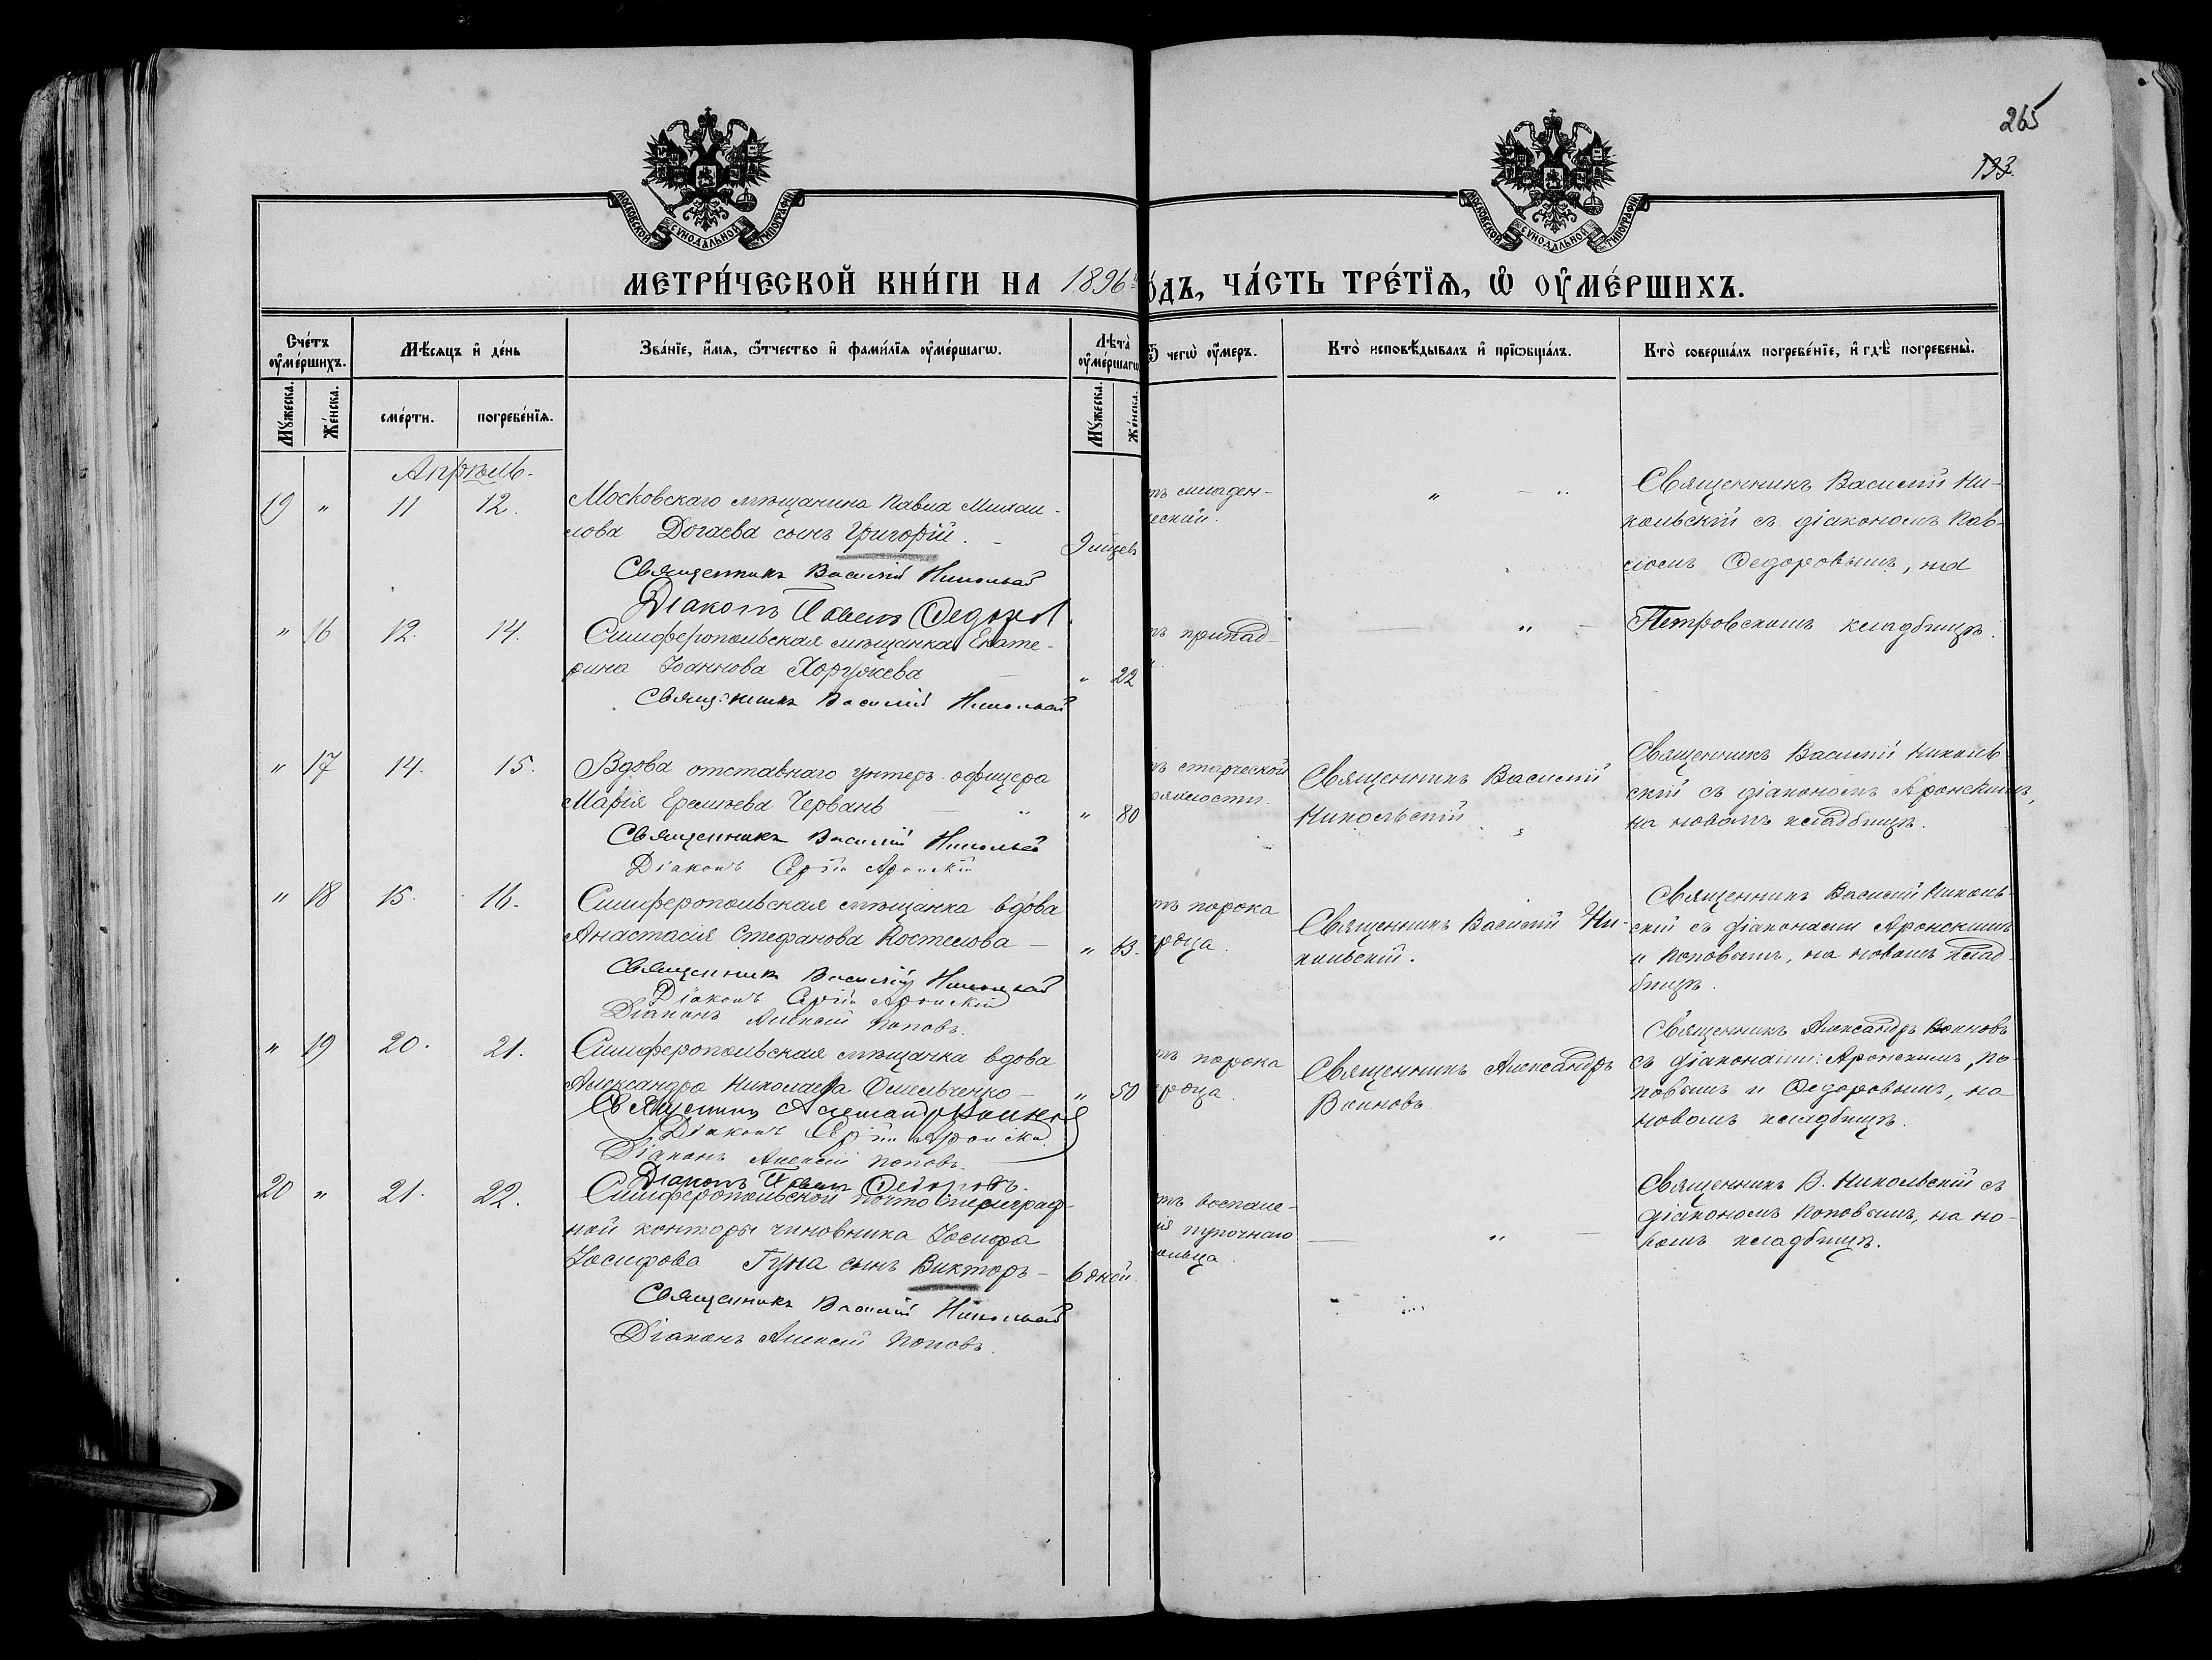 265
133.
МОСКОВСКОЙ СѴНОДАЛЬНОЙ ТИПОГРАФІИ
МОСКОВСКОЙ СѴНОДАЛЬНОЙ ТИПОГРАФІИ
МЕТРИ́ЧЕСКОЙ КНИ́ГИ НА 1896 го́ДЪ, ЧА́СТЬ ТРЕ́ТЇѦ, Ѡ҆ ОУ҆МЕ́РШИХЪ.
Сче́тъ оу҆ме́ршихъ.
Мѣ́сяцъ и҆ де́нь
Зва́нїе, и҆́мя, ѻ҆́тчество и҆ фами́лїя оу҆ме́ршагѡ.
Лѣта̀ оу҆ме́ршагѡ
Ѿ чегѡ̀ оу҆́меръ.
Кто̀ исповѣ́дывалъ и҆ прїѡбща́лъ.
Кто̀ соверша́лъ погребе́нїе, и҆ гдѣ̀ погребены̀.
Мꙋ́жеска.
Же́нска.
сме́рти.
погребе́нїя.
Мꙋ́жеска.
Же́нска.
Апрѣль.
19 " 11 12.
Московскаго мѣщанина Павла Михаи-
лова Догаева сынъ Григорій. -
9 мѣсяцевъ
Священникъ Василій Никольскій
Діаконъ Павелъ Ѳедоровъ.
тъ младен-
ческій.
" - "
Священникъ Василій Ни-
кольскій съ діакономъ Пав-
ломъ Ѳедоровымъ, на
Петровскомъ кладбищѣ.
" 16 12. 14.
Симферопольская мѣщанка Екате-
рина Іоаннова Хоружева — " 22
Священникъ Василій Никольскій
тъ припад-
— " —
" 17 14. 15.
Вдова отставнаго унтеръ-офицера
Марія Еремѣева Червань — " " 80
Священникъ Василій Никольскій
Діаконъ Сергій Аронскій
тъ старческой
дряхлости.
Священникъ Василій
Никольскій
Священникъ Василій Николь-
скій съ діакономъ Аронскимъ,
на новомъ кладбищѣ.
" 18 15. 16.
Симферопольская мѣщанка вдова
Анастасія Стефанова Костелова — " 63.
Священникъ Василій Никольскій
Діаконъ Сергій Аронскій
Діаконъ Алексій Поповъ.
тъ порока
сердца.
Священникъ Василій Ни-
кольскій.
Священникъ Василій Николь-
скій съ діаконами Аронскимъ
и Поповымъ, на новомъ клад-
бищѣ.
" 19 20. 21.
Симферопольская мѣщанка вдова
Александра Николаева Омельченко — " 50
Священникъ Александръ Воиновъ
Діаконъ Сергій Аронскій
Діаконъ Алексій Поповъ.
Діаконъ Павелъ Ѳедоровъ.
тъ порока
сердца.
Священникъ Александръ
Воиновъ.
Священникъ Александръ Воиновъ
съ діаконами: Аронскимъ, По-
повымъ и Ѳедоровымъ, на
новомъ кладбищѣ.
20 " 21. 22.
Симферопольской почто-телеграф-
ной конторы чиновника Іосифа
Іосифова Гуна сынъ Викторъ — 6 дней.
Священникъ Василій Никольскій
Діаконъ Алексій Поповъ.
тъ воспале-
нія пупочнаго
кольца.
— " —
Священникъ В. Никольскій съ
діакономъ Поповымъ, на но-
вомъ кладбищѣ.